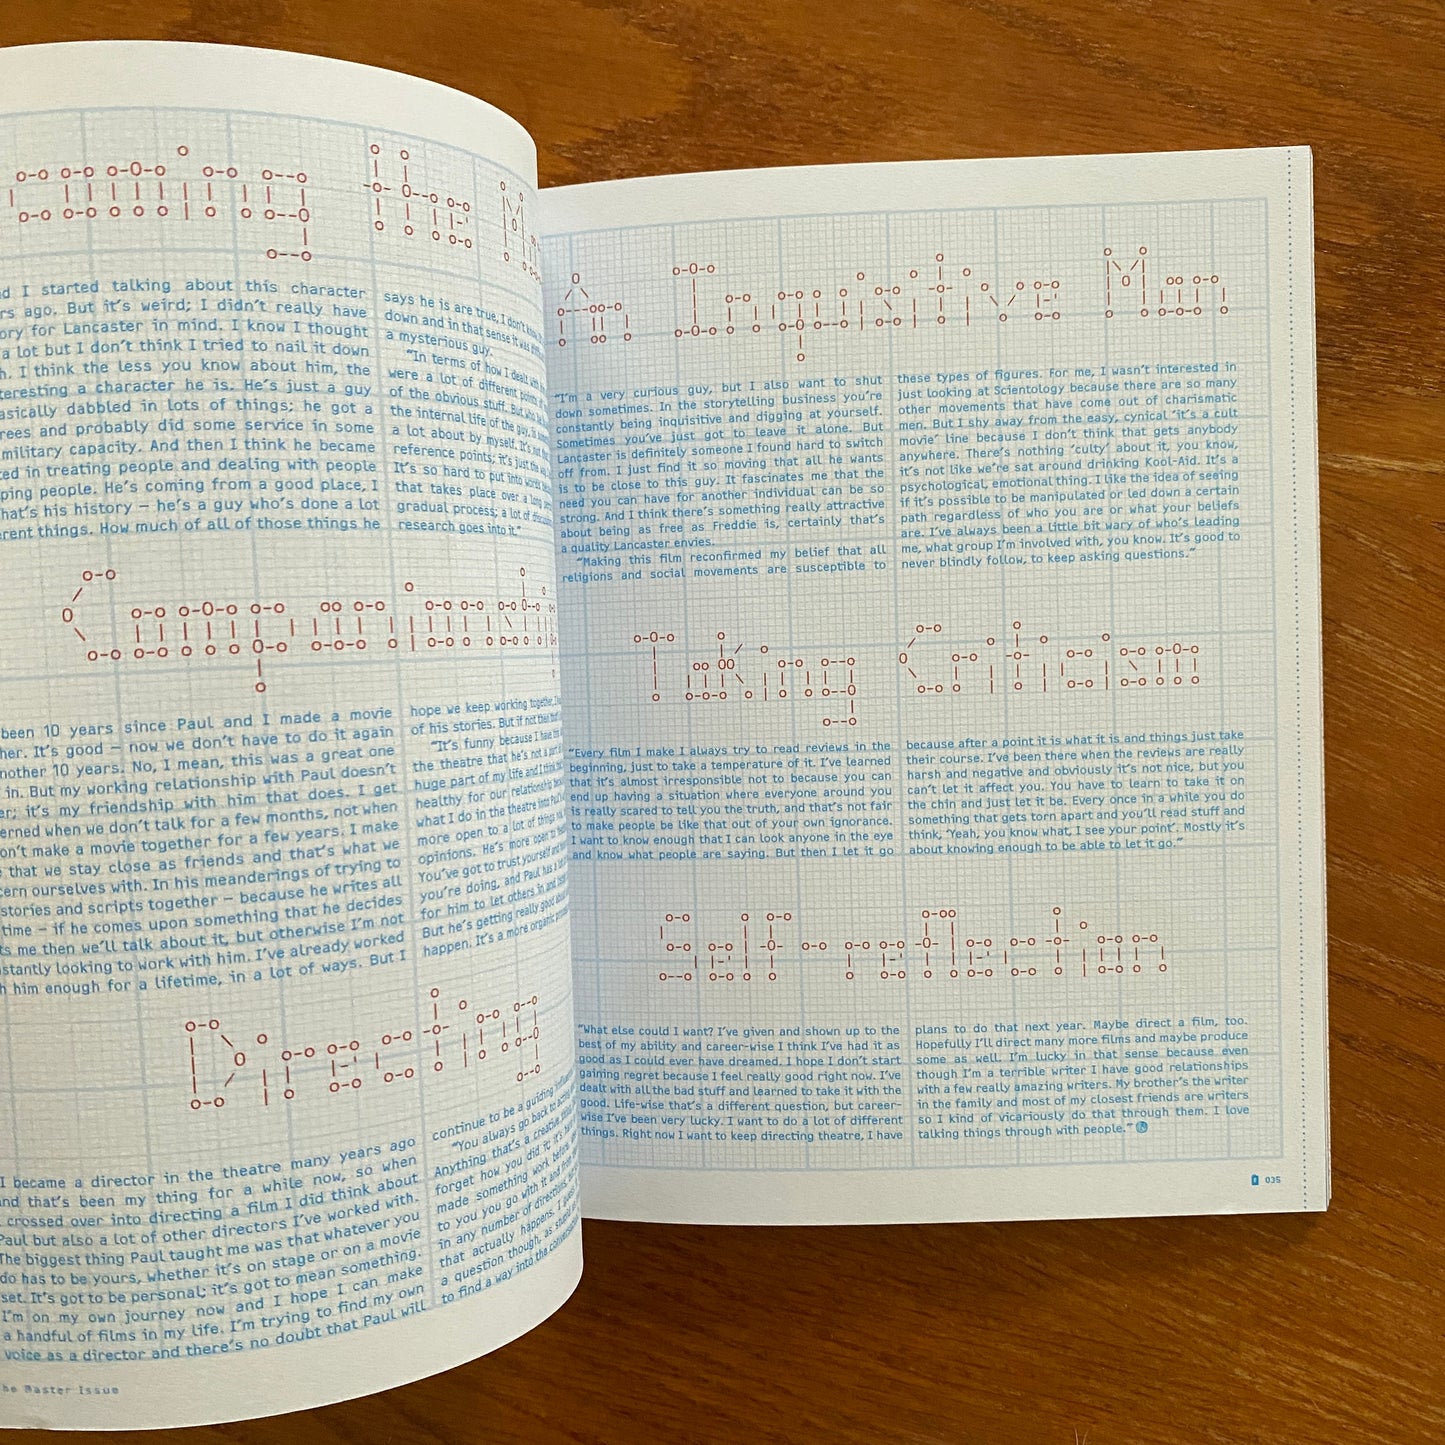 the
I started talking about this character
ago. But it's weird; I didn't really have
for Lancaster in mind. I know I thought
a lot but I don't think I tried to nail it down
I think the less you know about him, the
a character he is. He's just a guy
dabbled in lots of things; he got a
and probably did some service in some
military capacity. And then I think he became
in treating people and dealing with people
people. He's coming from a good place, I
his history – he's a guy who's done a lot
things. How much of all of those things he
says he is are true, I don't
down and in that sense it was
a mysterious guy.
"In terms of how I
were a lot of different
of the obvious stuff. But
the internal life of the guy,
a lot about by myself. It's
reference points; it's just
It's so hard to put into words
that takes place over a long
gradual process; a lot of
research goes into it."
been 10 years since Paul and I made a movie
It's good – now we don't have to do it again
10 years. No, I mean, this was a great one
in. But my working relationship with Paul doesn't
it's my friendship with him that does. I get
when we don't talk for a few months, not when
make a movie together for a few years. I make
that we stay close as friends and that's what we
ourselves with. In his meanderings of trying to
stories and scripts together – because he writes all
time – if he comes upon something that he decides
me then we'll talk about it, but otherwise I'm not
looking to work with him. I've already worked
him enough for a lifetime, in a lot of ways. But I
hope we keep working together,
of his stories. But if not then
"It's funny because I have
the theatre that he's not a
huge part of my life and I think
healthy for our relationship
what I do in the theatre into
more open to a lot of things
opinions. He's more open to
You've got to trust yourself
you're doing, and Paul has a
for him to let others in and
But he's getting really good
happen. It's a more organic
Directing
I became a director in the theatre many years ago
and that's been my thing for a while now, so when
crossed over into directing a film I did think about
Paul but also a lot of other directors I've worked with.
The biggest thing Paul taught me was that whatever you
do has to be yours, whether it's on stage or on a movie
set. It's got to be personal; it's got to mean something.
I'm on my own journey now and I hope I can make
a handful of films in my life. I'm trying to find my own
voice as a director and there's no doubt that Paul will
continue to be a guiding
"You always go back to
Anything that's a creative
forget how you did it
made something work before
to you you go with it and
in any number of directions,
that actually happens. I
a question though, as
to find a way into the conversation
Master Issue
An Inquisitive Man
"I'm a very curious guy, but I also want to shut
down sometimes. In the storytelling business you're
constantly being inquisitive and digging at yourself.
Sometimes you've just got to leave it alone. But
Lancaster is definitely someone I found hard to switch
off from. I just find it so moving that all he wants
is to be close to this guy. It fascinates me that the
need you can have for another individual can be so
strong. And I think there's something really attractive
about being as free as Freddie is, certainly that's
a quality Lancaster envies.
"Making this film reconfirmed my belief that all
religions and social movements are susceptible to
these types of figures. For me, I wasn't interested in
just looking at Scientology because there are so many
other movements that have come out of charismatic
men. But I shy away from the easy, cynical 'it's a cult
movie' line because I don't think that gets anybody
anywhere. There's nothing 'culty' about it, you know,
it's not like we're sat around drinking Kool-Aid. It's a
psychological, emotional thing. I like the idea of seeing
if it's possible to be manipulated or led down a certain
path regardless of who you are or what your beliefs
are. I've always been a little bit wary of who's leading
me, what group I'm involved with, you know. It's good to
never blindly follow, to keep asking questions."
Taking Criticism
"Every film I make I always try to read reviews in the
beginning, just to take a temperature of it. I've learned
that it's almost irresponsible not to because you can
end up having a situation where everyone around you
is really scared to tell you the truth, and that's not fair
to make people be like that out of your own ignorance.
I want to know enough that I can look anyone in the eye
and know what people are saying. But then I let it go
because after a point it is what it is and things just take
their course. I've been there when the reviews are really
harsh and negative and obviously it's not nice, but you
can't let it affect you. You have to learn to take it on
the chin and just let it be. Every once in a while you do
something that gets torn apart and you'll read stuff and
think, 'Yeah, you know what, I see your point'. Mostly it's
about knowing enough to be able to let it go."
Self-reflection
"What else could I want? I've given and shown up to the
best of my ability and career-wise I think I've had it as
good as I could ever have dreamed. I hope I don't start
gaining regret because I feel really good right now. I've
dealt with all the bad stuff and learned to take it with the
good. Life-wise that's a different question, but career-
wise I've been very lucky. I want to do a lot of different
things. Right now I want to keep directing theatre, I have
plans to do that next year. Maybe direct a film, too.
Hopefully I'll direct many more films and maybe produce
some as well. I'm lucky in that sense because even
though I'm a terrible writer I have good relationships
with a few really amazing writers. My brother's the writer
in the family and most of my closest friends are writers
so I kind of vicariously do that through them. I love
talking things through with people."
035